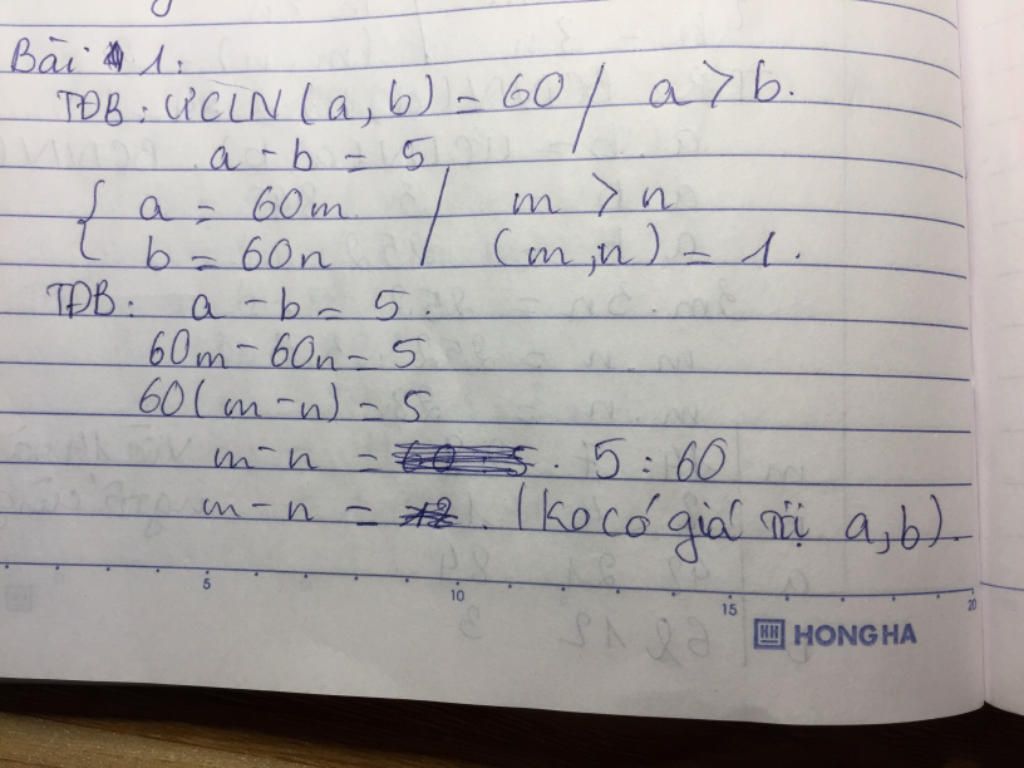 Bài 1:
TĐB: ƯCLN (a, b) = 60 / a > b.
a - b = 5
{ a = 60m / m > n
b = 60n / (m, n) = 1.
TĐB: a - b = 5.
60m - 60n = 5
60(m - n) = 5
m - n = 5 : 60
m - n = . (ko có giá trị a, b).
5 10 15 20
HH HONG HA